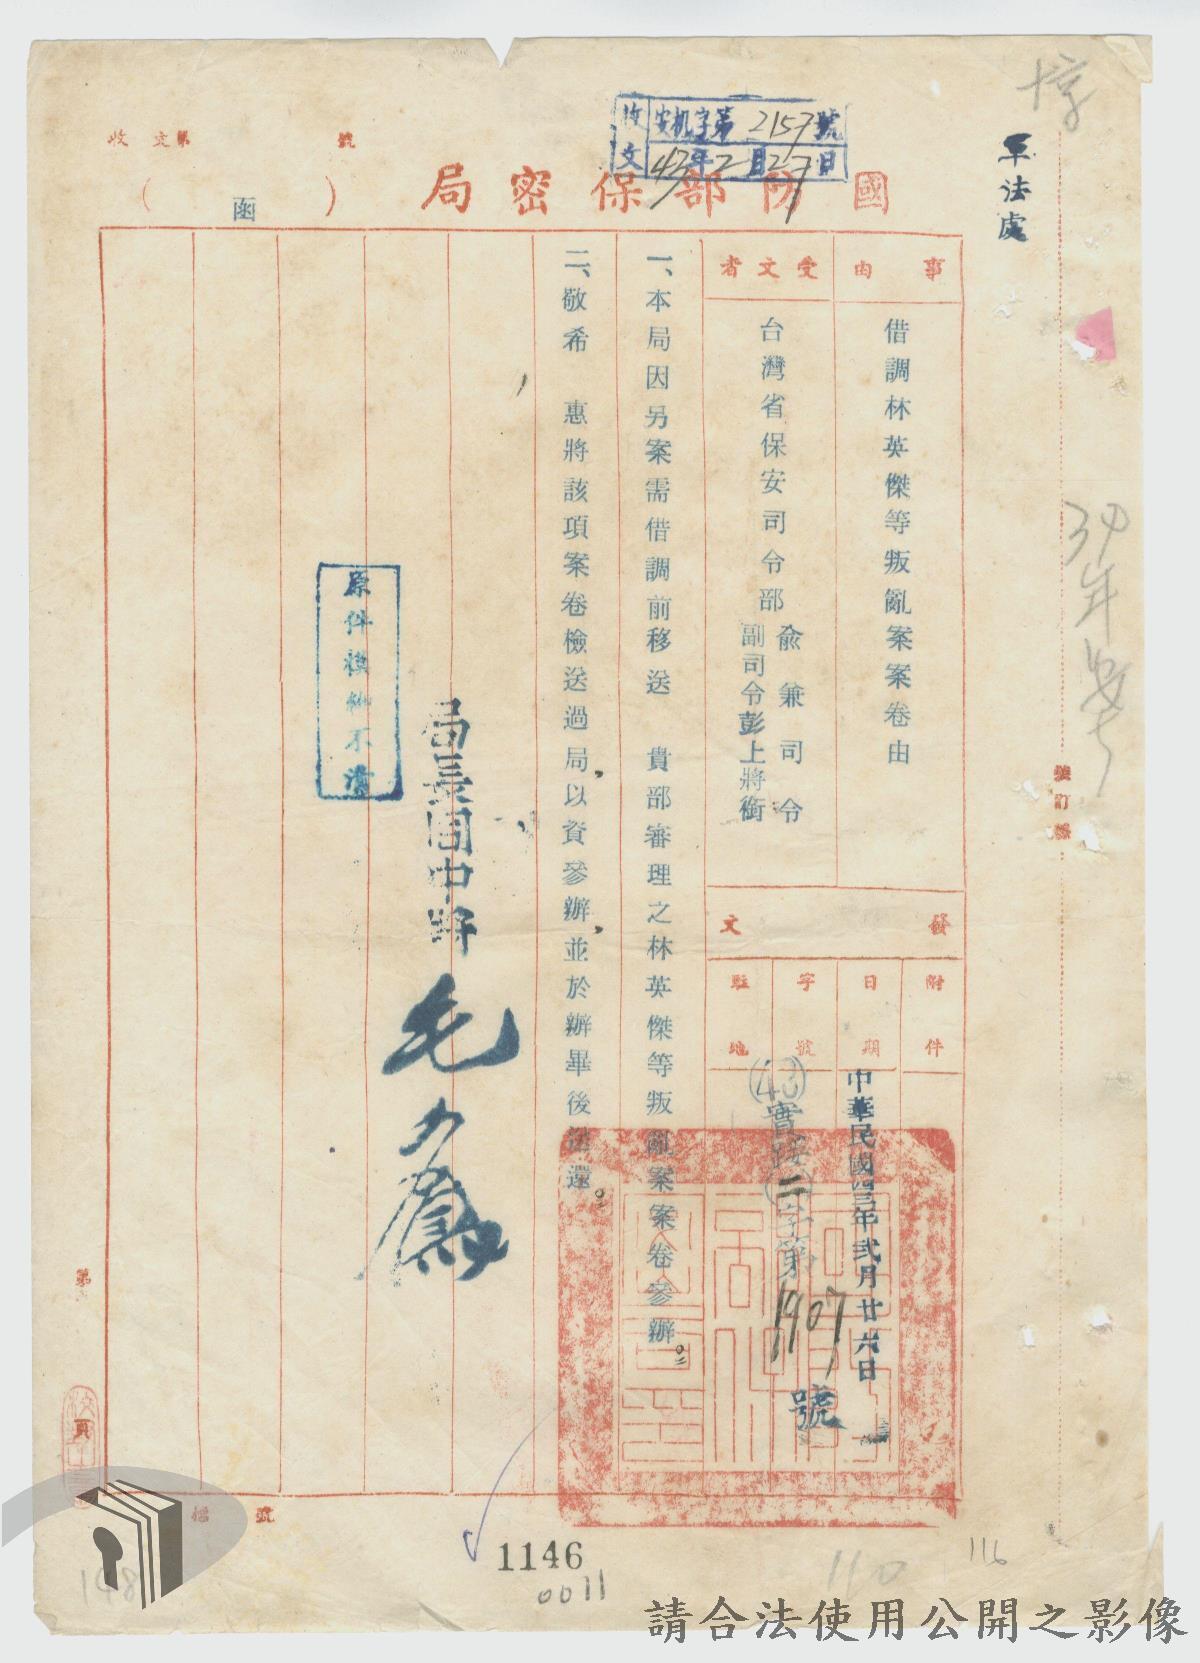 軍法處
收文第 號
收文 安机字第2157號
43年2月27日
國防部保密局
(函)
事由
借調林英傑等叛亂案案卷由
受文者
台灣省保安司令部
兪兼司令
副司令彭上將銜
發文
附件
日期
中華民國四三年弍月廿六日
字號
(43)實踐(二)字第1907號
駐地
一、本局因另案需借調前移送 貴部審理之林英傑等叛亂案案卷參辦。
二、敬希 惠將該項案卷檢送過局,以資參辦,並於辦畢後送還。
局長陸軍中將
毛人鳳
原件模糊不清
裝訂線
第 頁
檔號
1146
0011
110
116
148
請合法使用公開之影像